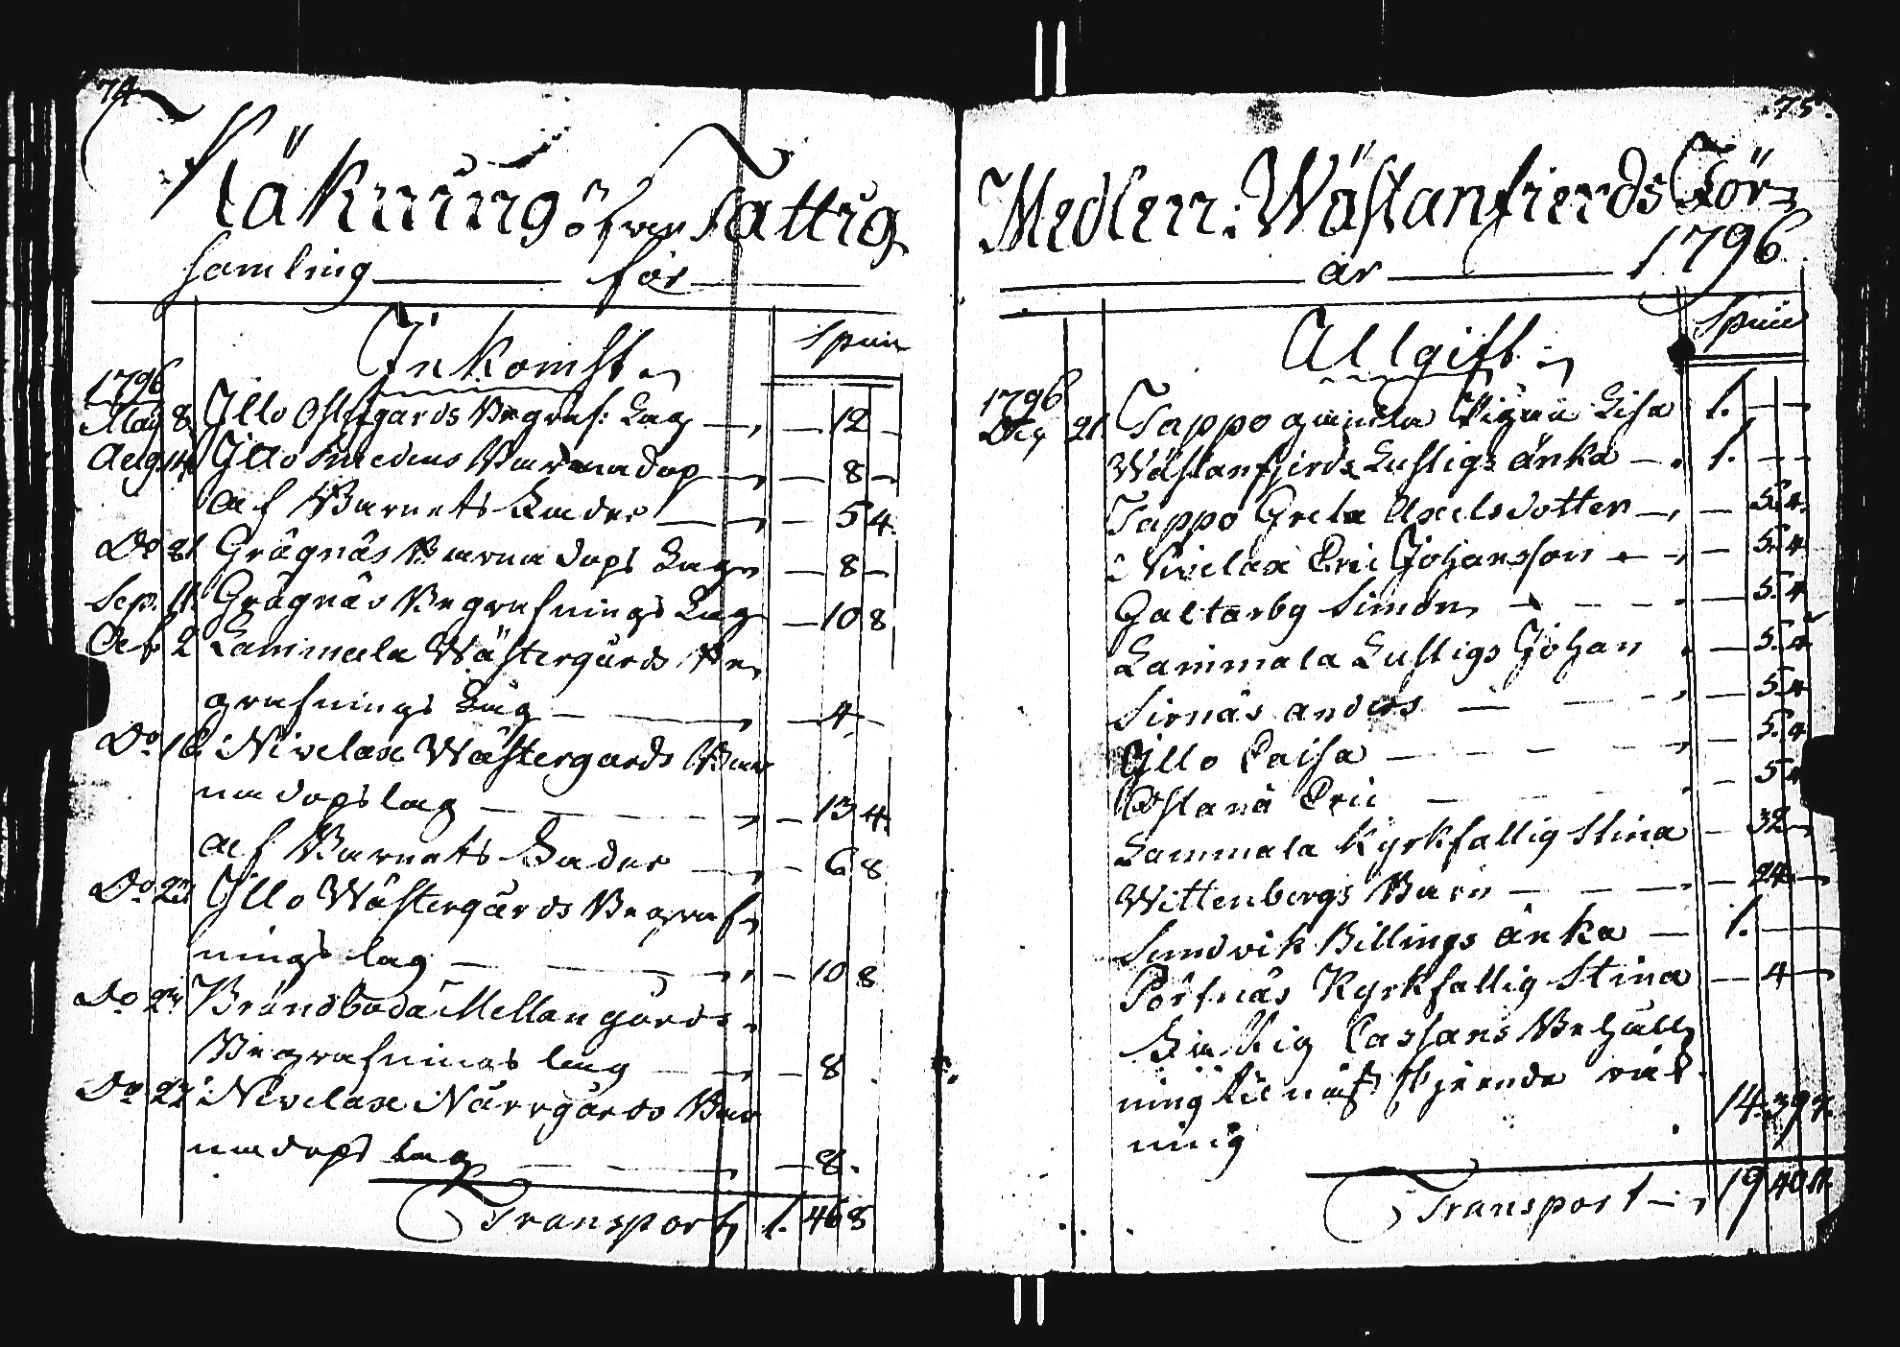 74
Räkning öfver Fattig
samling för
Inkomst
Spec.
1796
May 8. Jllo Östergårds Begraf: Lag — 12 —
Aug 14 Jllo Smedens Barnadop — 8 —
af Barnets Fader — 5 4.
Do 21 Grågnäs Barnadops Lag — 8 —
Sep. 11. Grågnäs Begrafnings Lag — 10 8
Oct 2 Lammala Wästergårds Be
grafnings Lag — 4 —
Do 16 Nivelax Wästergards Bar
nadopslag — 13 4.
af Barnets Fader — 6 8
Do 23 Jllo Wästergårds Begraf
nings lag — 10 8
Do Brändboda Mellangårds
Begrafnings lag — 8
Do 27 Nivelax Norrgårds Bar
nadops lag — 8.
Transport 1. 46 8
75.
Medlen i Wästanfierds För
år 1796
Utgift
1796
21. Tappo Lisa 1. —
Wästanfjerds Lustigs änka — 1. —
Tappo Greta Axelsdotter — 5. 4.
Nivelax Eric Johansson — 5. 4
Galtarby Simon — 5. 4
Lammala Lustigs Johan — 5. 4
Sirnäs anders — 5 4
Jllo Caisa — 5. 4
Östanå Eric — 5 4
Lammala Kyrkfattig Stina — 32 —
Wittenbergs Barn — 24 —
Sundvik Billings änka — 1. —
Pörtnäs Kyrkfattig Stina — 4 —
Fattig Cassans Behåll
ning til näst räk
ning 14. 39
Transport — 19 40